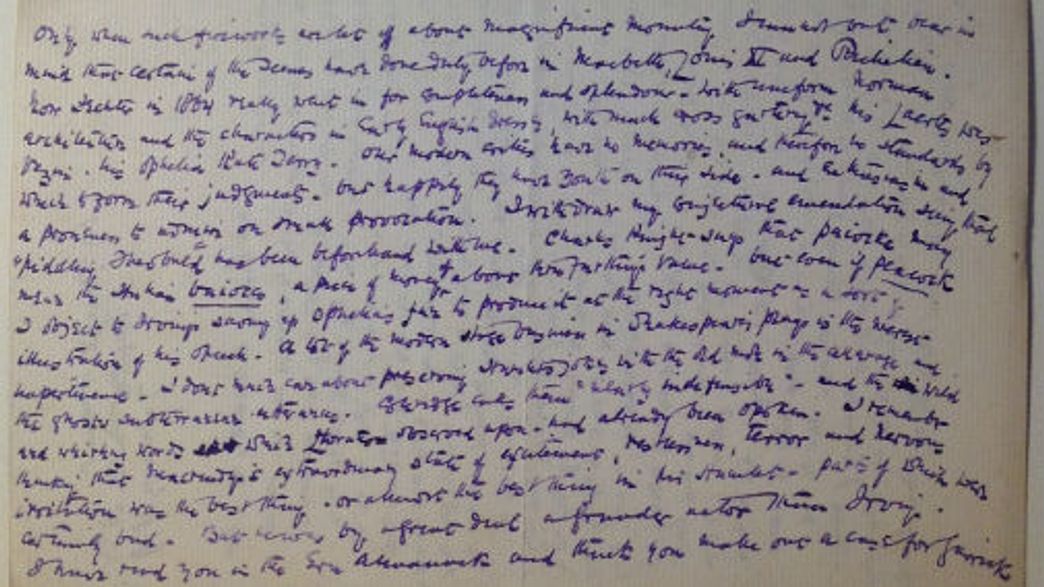 Only when such artists write of about magnificent mounting I cannot but bear in
mind that certain of the scenes have done duty before in Macbeth, Louis XI and Richelieu.
Now Fechter in 1864 really went in for completeness and splendour - with uniform Norman
architecture and the characters in Early English dress, with much cross gartering &c his Laertes was
his Ophelia Kate Terry. Our modern critics have no memories, and therefore no standards by
which to form their judgments. but happily they have youth on their side - and enthusiasm and
a proneness to on small provocation. I withdraw my conjectural emendation seeing that
"piddling Theobald" has been beforehand with me. Charles Knight says that paiocke may
mean the Italian baiocco, a piece of money of about three farthings value. but even if peacock
I object to Irving's saving up Ophelia's fan to produce it at the right moment as a sort of
illustration of his speech. A lot of the modern stage business in Shakespeare's plays is the merest
impertinence. - I don't much care about preserving Hamlet's jokes with the old mole in the cellarage and
the ghost's subterranean utterances. Coleridge calls them "nearly indefensible" - and the wild
and whirling words which Horatio observed upon - had already been spoken. I remember
thinking that Macready's extraordinary state of excitement, restlessness, terror and nervous
irritation was the best thing - or almost the best thing in his Hamlet - parts of which were
certainly bad. But he was by a great deal a grander actor than Irving.
I have read you in the Era Almanack and think you make out a case for Garrick